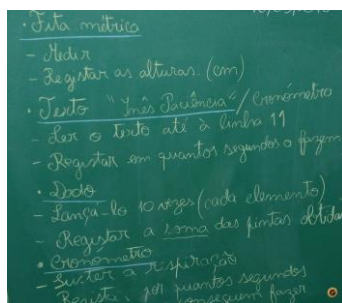 • Fita métrica
- Medir
- Registar as alturas. (cm)
• Texto "Inês Paciência" / Cronómetro
- Ler o texto até à linha 11
- Registar em quantos segundos o fazem
• Dado
- Lança-lo 10 vezes (cada elemento)
- Registar a soma das pintas obtidas
• Cronómetro
- Suster a respiração
Registar por quantos segundos
conseguem fazer